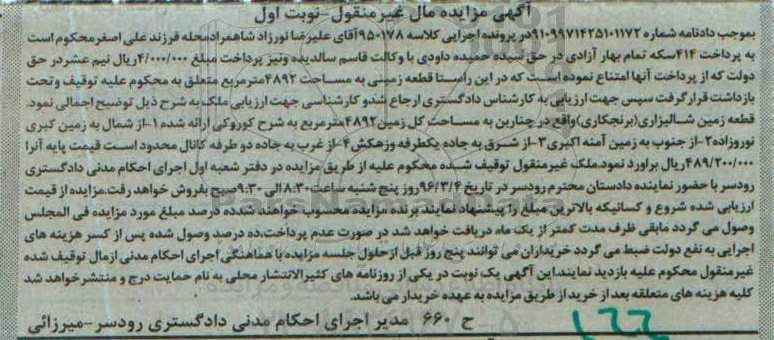 آگهی مزایده مال غیرمنقول-نوبت اول
بموجب دادنامه شماره ۹۱۰۹۹۷۱۴۲۵۱۰۱۱۷۲در پرونده اجرایی کلاسه ۹۵۰۱۷۸آقای علیرضا نورزاد شاهمرادمحله فرزند علی اصغر محکوم است
به پرداخت ۴۱۴سکه تمام بهار آزادی در حق سیده حمیده داودی با وکالت قاسم سالدیده ونیز پرداخت مبلغ ۴/۰۰۰/۰۰۰ریال نیم عشردر حق
دولت که از پرداخت آنها امتناع نموده است که در این راستا قطعه زمینی به مساحت ۴۸۹۲مترمربع متعلق به محکوم علیه توقیف وتحت
بازداشت قرارگرفت سپس جهت ارزیابی به کارشناس دادگستری ارجاع شدو کارشناسی جهت ارزیابی ملک به شرح ذیل توضیح اجمالی نمود.
قطعه زمین شالیزاری(برنجکاری)واقع در چنارین به مساحت کل زمین۴۸۹۲مترمربع به شرح کوروکی ارائه شده ۱-از شمال به زمین کبری
نوروزاده۲-از جنوب به زمین آمنه اکبری۳-از شرق به جاده یکطرفه وزهکش۴-از غرب به جاده دو طرفه کانال محدود است قیمت پایه آنرا
۴۸۹/۲۰۰/۰۰۰ریال براورد نمود.ملک غیرمنقول توقیف شده محکوم علیه از طریق مزایده در دفتر شعبه اول اجرای احکام مدنی دادگستری
رودسر با حضور نماینده دادستان محترم رودسر در تاریخ ۹۶/۳/۴روز پنج شنبه ساعت۸:۳۰الی ۹:۳۰صبح بفروش خواهد رفت.مزایده از قیمت
ارزیابی شده شروع و کسانیکه بالاترین مبلغ را پیشنهاد نمایند برنده مزایده محسوب خواهند شدده درصد مبلغ مورد مزایده فی المجلس
وصول می گردد مابقی ظرف مدت کمتر از یک ماه دریافت خواهد شد در صورت عدم پرداخت،ده درصد وصول شده پس از کسر هزینه های
اجرایی به نفع دولت ضبط می گردد خریداران می توانند پنج روز قبل ازحلول جلسه مزایده با هماهنگی اجرای احکام مدنی ازمال توقیف شده
غیرمنقول محکوم علیه بازدید نمایند.این آگهی یک نوبت در یکی از روزنامه های کثیرالانتشار محلی به نام حمایت درج و منتشرخواهد شد
کلیه هزینه های متعلقه بعد از خرید از طریق مزایده به عهده خریدار می باشد.
ح ۶۶۰ مدیر اجرای احکام مدنی دادگستری رودسر-میرزائی